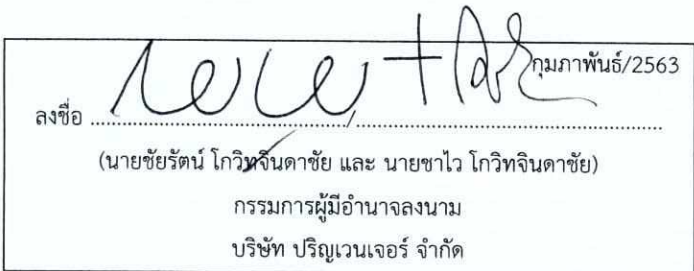 กุมภาพันธ์/2563
ลงชื่อ ............................../..............................
(นายชัยรัตน์ โกวิทจินดาชัย และ นายชาไว โกวิทจินดาชัย)
กรรมการผู้มีอำนาจลงนาม
บริษัท ปริญเวนเจอร์ จำกัด